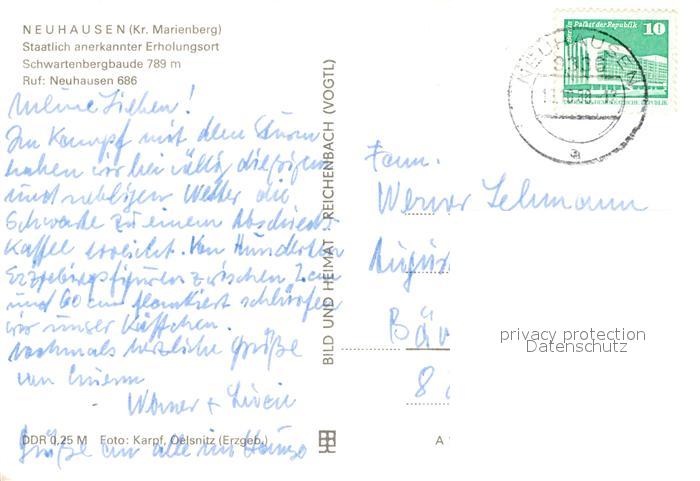 NEUHAUSEN (Kr. Marienberg)
Staatlich anerkannter Erholungsort
Schwartenbergbaude 789 m
Ruf: Neuhausen 686
Meine Lieben!
Im Kampf mit dem Sturm
haben wir bei völlig
und nebligen Wetter die
zu einem Abschieds-
Kaffee erreicht. Von Hunderten
Erzgebirgsfiguren zwischen 2 cm
und 60 cm flankiert schlürfen
wir unser Käffchen.
Nochmals herzliche Grüße
von Euerm
Werner +
DDR 0,25 M Foto: Karpf, Oelsnitz (Erzgeb.)
Grüße an alle im Hause
BILD UND HEIMAT REICHENBACH (VOGTL)
A 1
Berlin, Palast der Republik
10
DEUTSCHE DEMOKRATISCHE REPUBLIK
NEUHAUSEN
a
Fam.
Werner Lehmann
August
Bär
8
privacy protection
Datenschutz